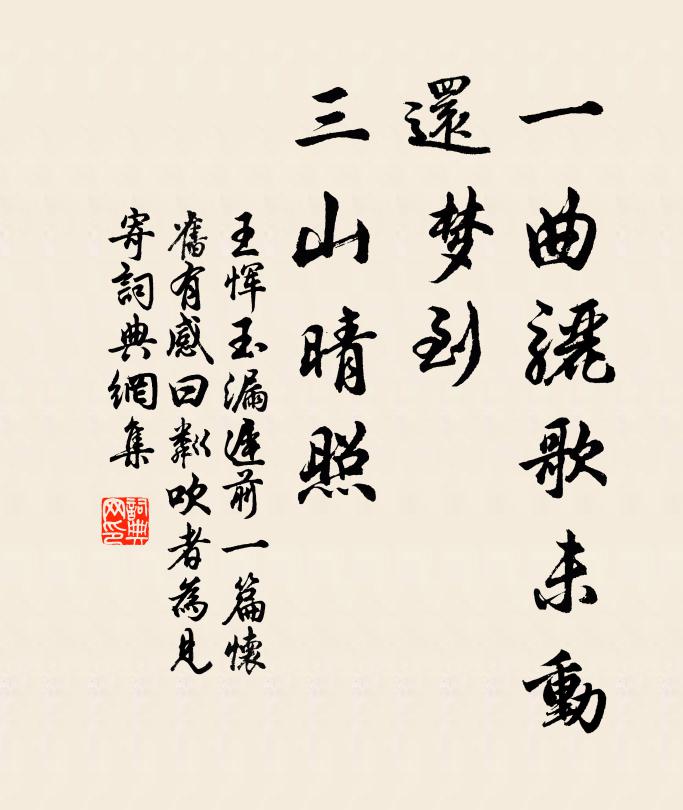 一曲驪歌未動
還梦到
三山晴照
王惲玉漏遲前一篇懷
舊有感曰鄰吹者為見
寄詞典網集
詞典网印